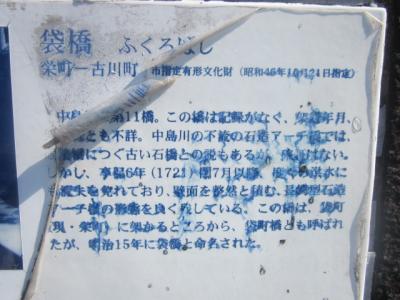 袋橋 ふくろばし
栄町ー古川町 市指定有形文化財 (昭和46年10月21日指定)
中島 第11橋。この橋は記録がなく、 年月、
とも不詳。中島川の不 の石造アーチ橋では、
につぐ古い石橋との説もあるが、 はない。
しかし、享保6年(1721)閏7月以降、 の洪水に
も流失を免れており、壁面を整然と積む、長崎型石造
アーチ橋の形態を良く残している。この橋は、袋町
(現・栄町)に架かるところから、袋町橋とも呼ばれ
たが、明治15年に袋橋と命名された。